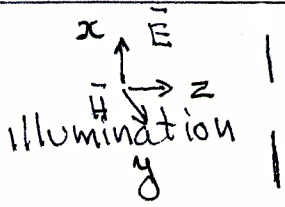 x Ē
H̄ z
illumination
y